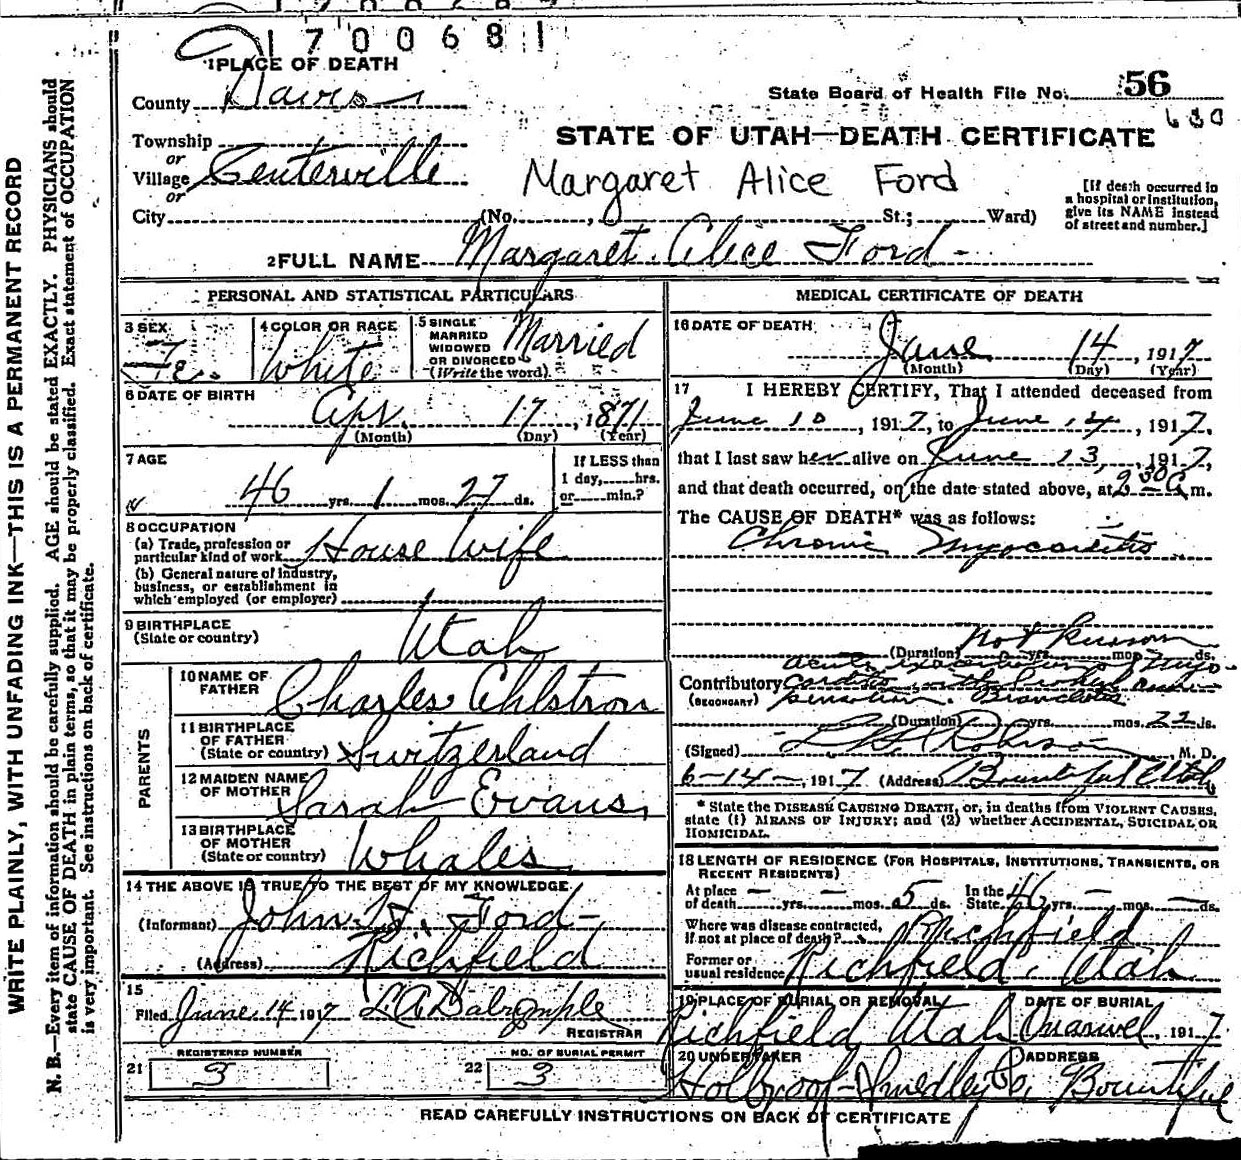 1700681
1 PLACE OF DEATH
County Davis
State Board of Health File No. 56
630
Township
or
Village Centerville
or
STATE OF UTAH—DEATH CERTIFICATE
Margaret Alice Ford
City (No. , St.; Ward)
[If death occurred in a hospital or institution, give its NAME instead of street and number.]
2 FULL NAME Margaret Alice Ford
PERSONAL AND STATISTICAL PARTICULARS
3 SEX Fe.
4 COLOR OR RACE White
5 SINGLE MARRIED WIDOWED OR DIVORCED (Write the word) Married
6 DATE OF BIRTH Apr. 17, 1871
(Month) (Day) (Year)
7 AGE 46 yrs. 1 mos. 27 ds.
If LESS than 1 day, hrs. or min.?
8 OCCUPATION
(a) Trade, profession or particular kind of work House Wife
(b) General nature of industry, business, or establishment in which employed (or employer)
9 BIRTHPLACE (State or country) Utah
PARENTS
10 NAME OF FATHER Charles Ahlstrom
11 BIRTHPLACE OF FATHER (State or country) Switzerland
12 MAIDEN NAME OF MOTHER Sarah Evans,
13 BIRTHPLACE OF MOTHER (State or country) Whales
14 THE ABOVE IS TRUE TO THE BEST OF MY KNOWLEDGE
(Informant) John H. Ford
(Address) Richfield
15
Filed June 14 1917 L A Dalrymple
REGISTRAR
21 REGISTERED NUMBER 3
22 NO. OF BURIAL PERMIT 3
MEDICAL CERTIFICATE OF DEATH
16 DATE OF DEATH June 14, 1917
(Month) (Day) (Year)
17 I HEREBY CERTIFY, That I attended deceased from
June 10, 1917, to June 14, 1917,
that I last saw her alive on June 13, 1917,
and that death occurred, on the date stated above, at 2 30 A m.
The CAUSE OF DEATH* was as follows:
Chronic Myocarditis
(Duration) not known yrs. mos. ds.
Contributory (SECONDARY) acute Myocarditis with
(Duration) yrs. mos. 22 ds.
(Signed) Robinson, M. D.
6-14-, 1917 (Address) Bountiful Utah
* State the DISEASE CAUSING DEATH, or, in deaths from VIOLENT CAUSES, state (1) MEANS OF INJURY; and (2) whether ACCIDENTAL, SUICIDAL OR HOMICIDAL.
18 LENGTH OF RESIDENCE (FOR HOSPITALS, INSTITUTIONS, TRANSIENTS, OR RECENT RESIDENTS)
At place of death — yrs. — mos. 5 ds. In the State 46 yrs. — mos. — ds.
Where was disease contracted, if not at place of death? Richfield
Former or usual residence Richfield, Utah
19 PLACE OF BURIAL OR REMOVAL Richfield Utah
DATE OF BURIAL 1917
20 UNDERTAKER Holbrook-Smedley Co,
ADDRESS Bountiful
READ CAREFULLY INSTRUCTIONS ON BACK OF CERTIFICATE
WRITE PLAINLY, WITH UNFADING INK—THIS IS A PERMANENT RECORD
N. B.—Every item of information should be carefully supplied. AGE should be stated EXACTLY. PHYSICIANS should
state CAUSE OF DEATH in plain terms, so that it may be properly classified. Exact statement of OCCUPATION
is very important. See instructions on back of certificate.